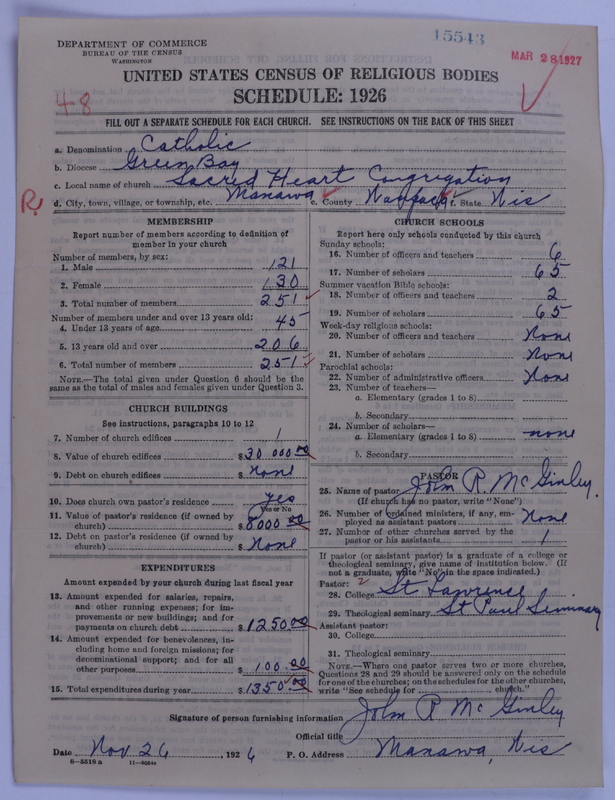 DEPARTMENT OF COMMERCE
BUREAU OF THE CENSUS
WASHINGTON
15543
MAR 28 1927
UNITED STATES CENSUS OF RELIGIOUS BODIES
SCHEDULE: 1926
4-8
FILL OUT A SEPARATE SCHEDULE FOR EACH CHURCH. SEE INSTRUCTIONS ON THE BACK OF THIS SHEET
a. Denomination Catholic
b. Diocese Green Bay
c. Local name of church Sacred Heart Congregation
R. d. City, town, village, or township, etc. Manawa e. County Waupaca f. State Wis
MEMBERSHIP
Report number of members according to definition of member in your church
Number of members, by sex:
1. Male 121
2. Female 130
3. Total number of members 251
Number of members under and over 13 years old:
4. Under 13 years of age 45
5. 13 years old and over 206
6. Total number of members 251
NOTE.—The total given under Question 6 should be the
same as the total of males and females given under Question 3.
CHURCH BUILDINGS
See instructions, paragraphs 10 to 12
7. Number of church edifices 1
8. Value of church edifices $30 000 00
9. Debt on church edifices $ None
10. Does church own pastor's residence yes
Yes or No
11. Value of pastor's residence (if owned by
church) $ 8000 00
12. Debt on pastor's residence (if owned by
church) $ None
EXPENDITURES
Amount expended by your church during last fiscal year
13. Amount expended for salaries, repairs,
and other running expenses; for im-
provements or new buildings; and for
payments on church debt $ 1250.00
14. Amount expended for benevolences, in-
cluding home and foreign missions; for
denominational support; and for all
other purposes $ 100.00
15. Total expenditures during year $ 1350.00
CHURCH SCHOOLS
Report here only schools conducted by this church
Sunday schools:
16. Number of officers and teachers 6
17. Number of scholars 65
Summer vacation Bible schools:
18. Number of officers and teachers 2
19. Number of scholars 65
Week-day religious schools:
20. Number of officers and teachers None
21. Number of scholars None
Parochial schools:
22. Number of administrative officers None
23. Number of teachers—
a. Elementary (grades 1 to 8)
b. Secondary
24. Number of scholars—
a. Elementary (grades 1 to 8) none
b. Secondary
PASTOR
25. Name of pastor John R. McGinley.
(If church has no pastor, write "None")
26. Number of ordained ministers, if any, em-
ployed as assistant pastors None
27. Number of other churches served by the
pastor or his assistants 1
If pastor (or assistant pastor) is a graduate of a college or
theological seminary, give name of institution below. (If
not a graduate, write "No" in the space indicated.)
Pastor: 2
28. College St Lawrence
29. Theological seminary St Paul Seminary
Assistant pastor:
30. College
31. Theological seminary
NOTE.—Where one pastor serves two or more churches,
Questions 28 and 29 should be answered only on the schedule
for one of the churches; on the schedules for the other churches,
write "See schedule for church."
Signature of person furnishing information John R McGinley
Official title
Date Nov 26, 1926 P. O. Address Manawa, Wis
8—5518 a